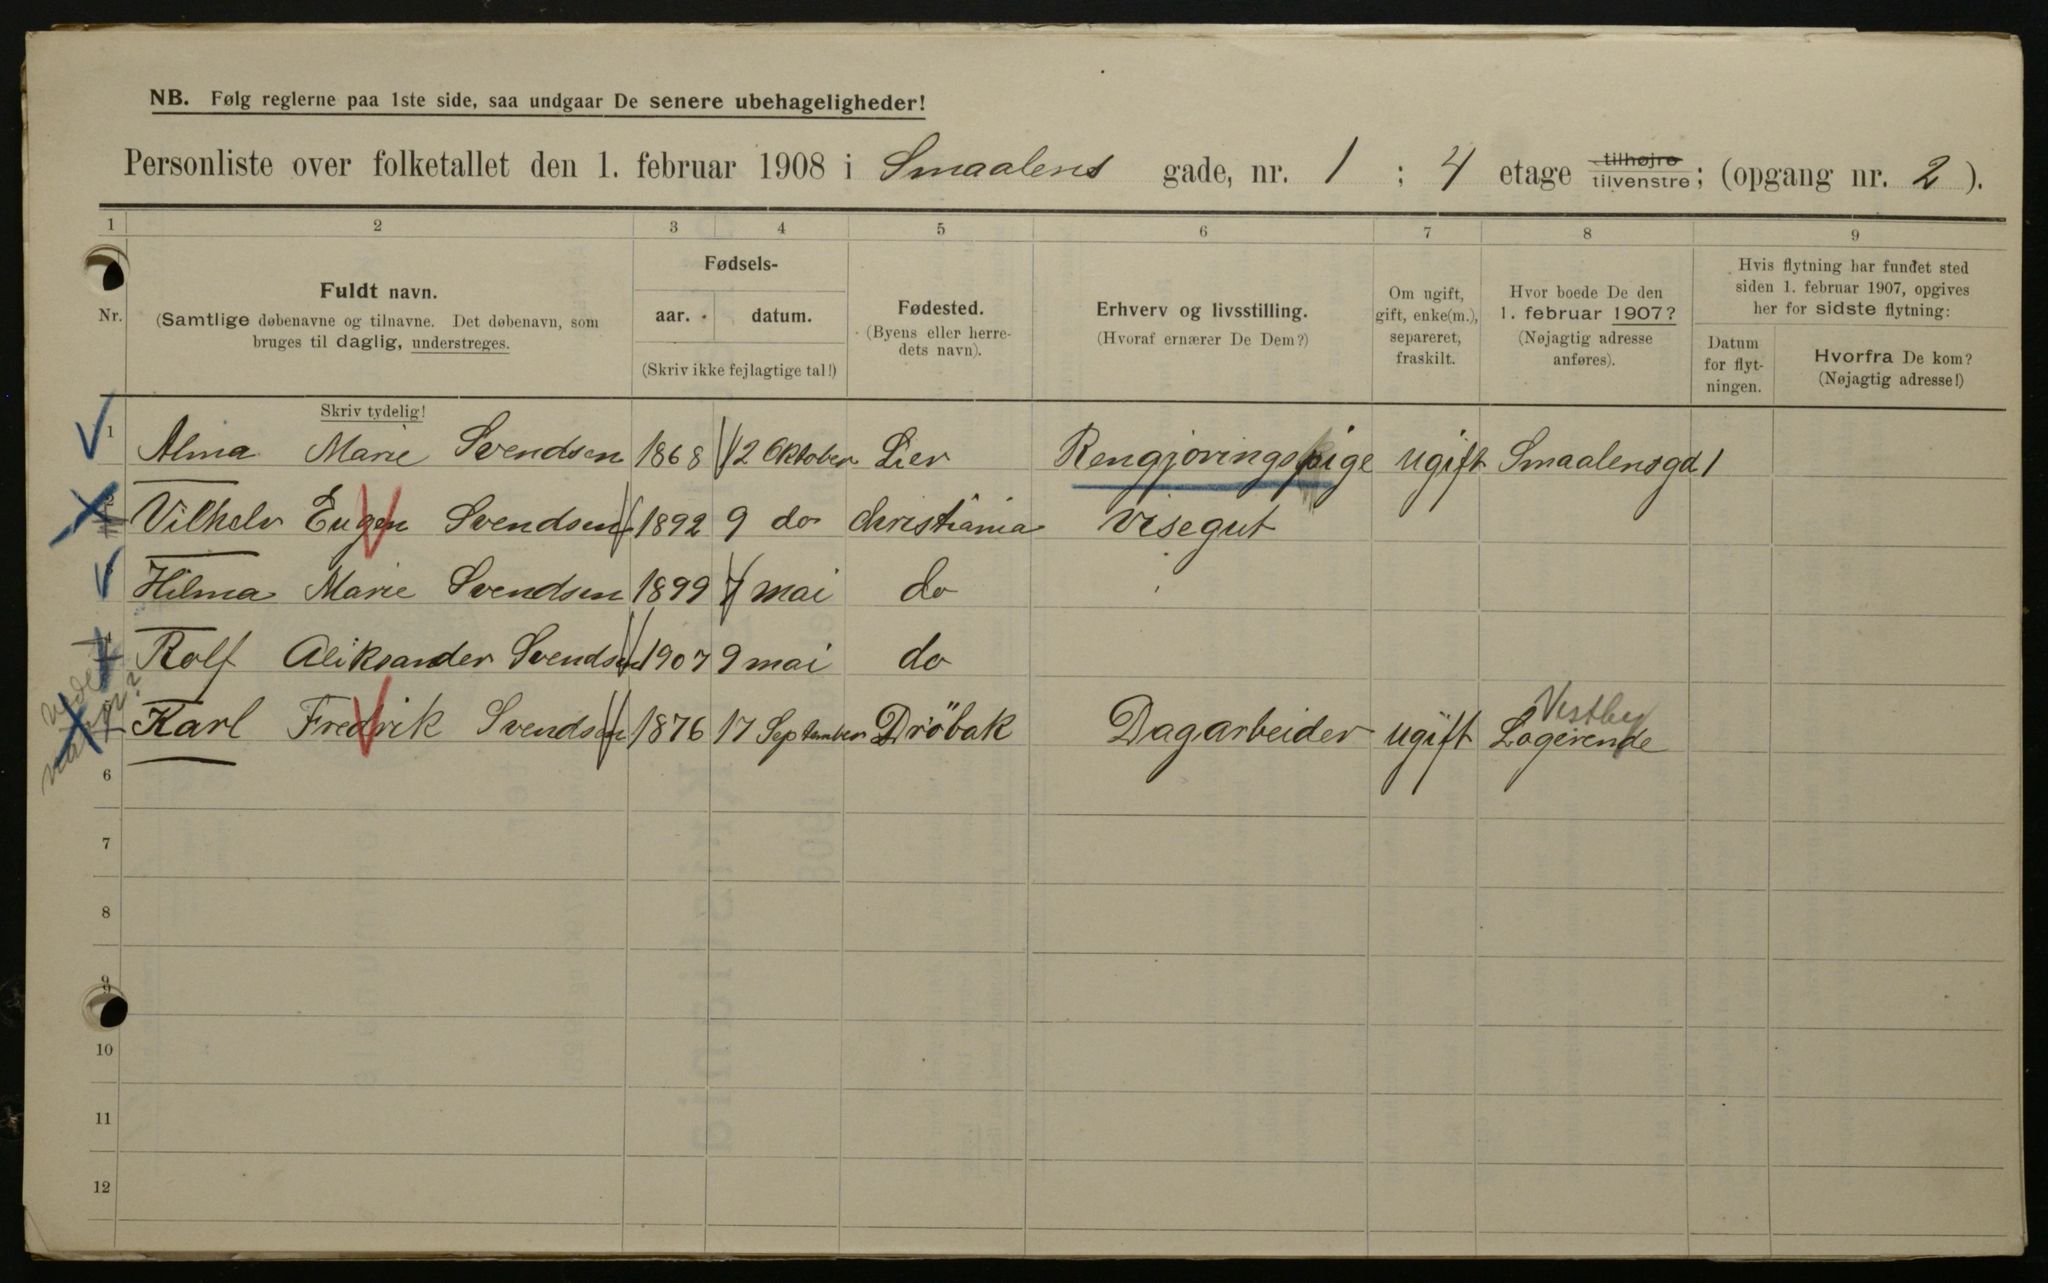 NB. Følg reglerne paa 1ste side, saa undgaar De senere ubehageligheder!
Personliste over folketallet den 1. februar 1908 i Smaalens gade, nr. 1 ; 4 etage tilhøjre tilvenstre; (opgang nr. 2 ).
1 2 3 4 5 6 7 8 9
Nr.
Fuldt navn.
(Samtlige døbenavne og tilnavne. Det døbenavn, som
bruges til daglig, understreges.
Skriv tydelig!
Fødsels-
aar. datum.
(Skriv ikke fejlagtige tal!)
Fødested.
(Byens eller herre-
dets navn).
Erhverv og livsstilling.
(Hvoraf ernærer De Dem?)
Om ugift,
gift, enke(m.),
separeret,
fraskilt.
Hvor boede De den
1. februar 1907?
(Nøjagtig adresse
anføres).
Hvis flytning har fundet sted
siden 1. februar 1907, opgives
her for sidste flytning:
Datum
for flyt-
ningen.
Hvorfra De kom?
(Nøjagtig adresse!)
1 Alma Marie Svendsen 1868 12 Oktober Lier Rengjøringspige ugift Smaalensgd 1
2 Vilhelv Eugen Svendsen 1892 9 do Christiania Visegut
Hilma Marie Svendsen 1899 7 mai do
4 Rolf Aliksander Svendsen 1907 9 mai do
Vestby
Karl Fredrik Svendsen 1876 17 September Dröbak Dagarbeider ugift Logerende
6
7
8
9
10
11
12